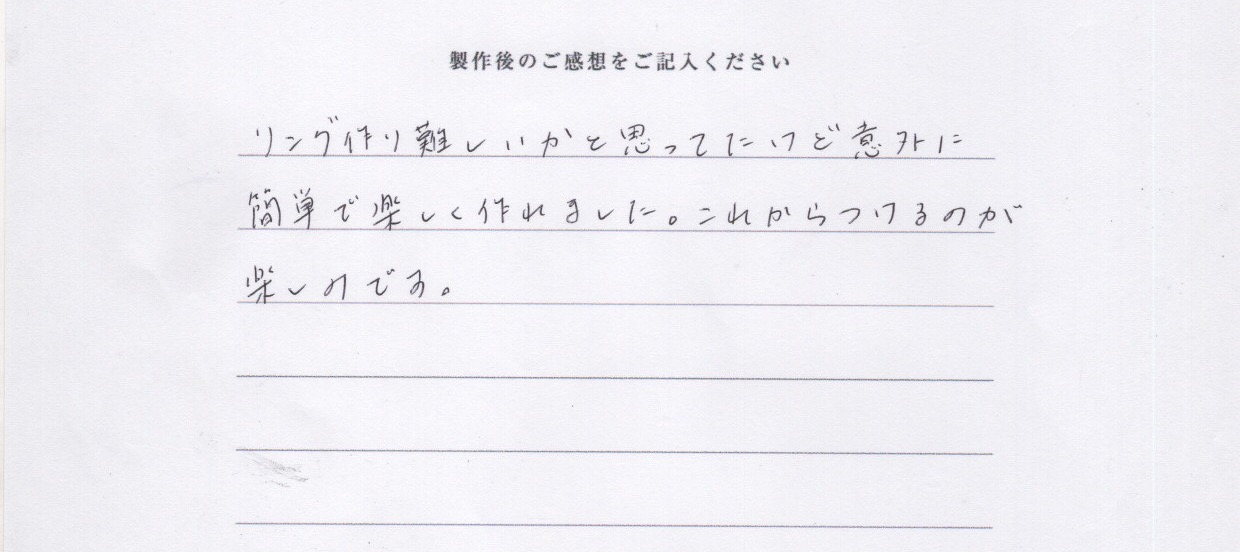 製作後のご感想をご記入ください
リング作り難しいかと思ってたけど意外に
簡単で楽しく作れました。これからつけるのが
楽しみです。